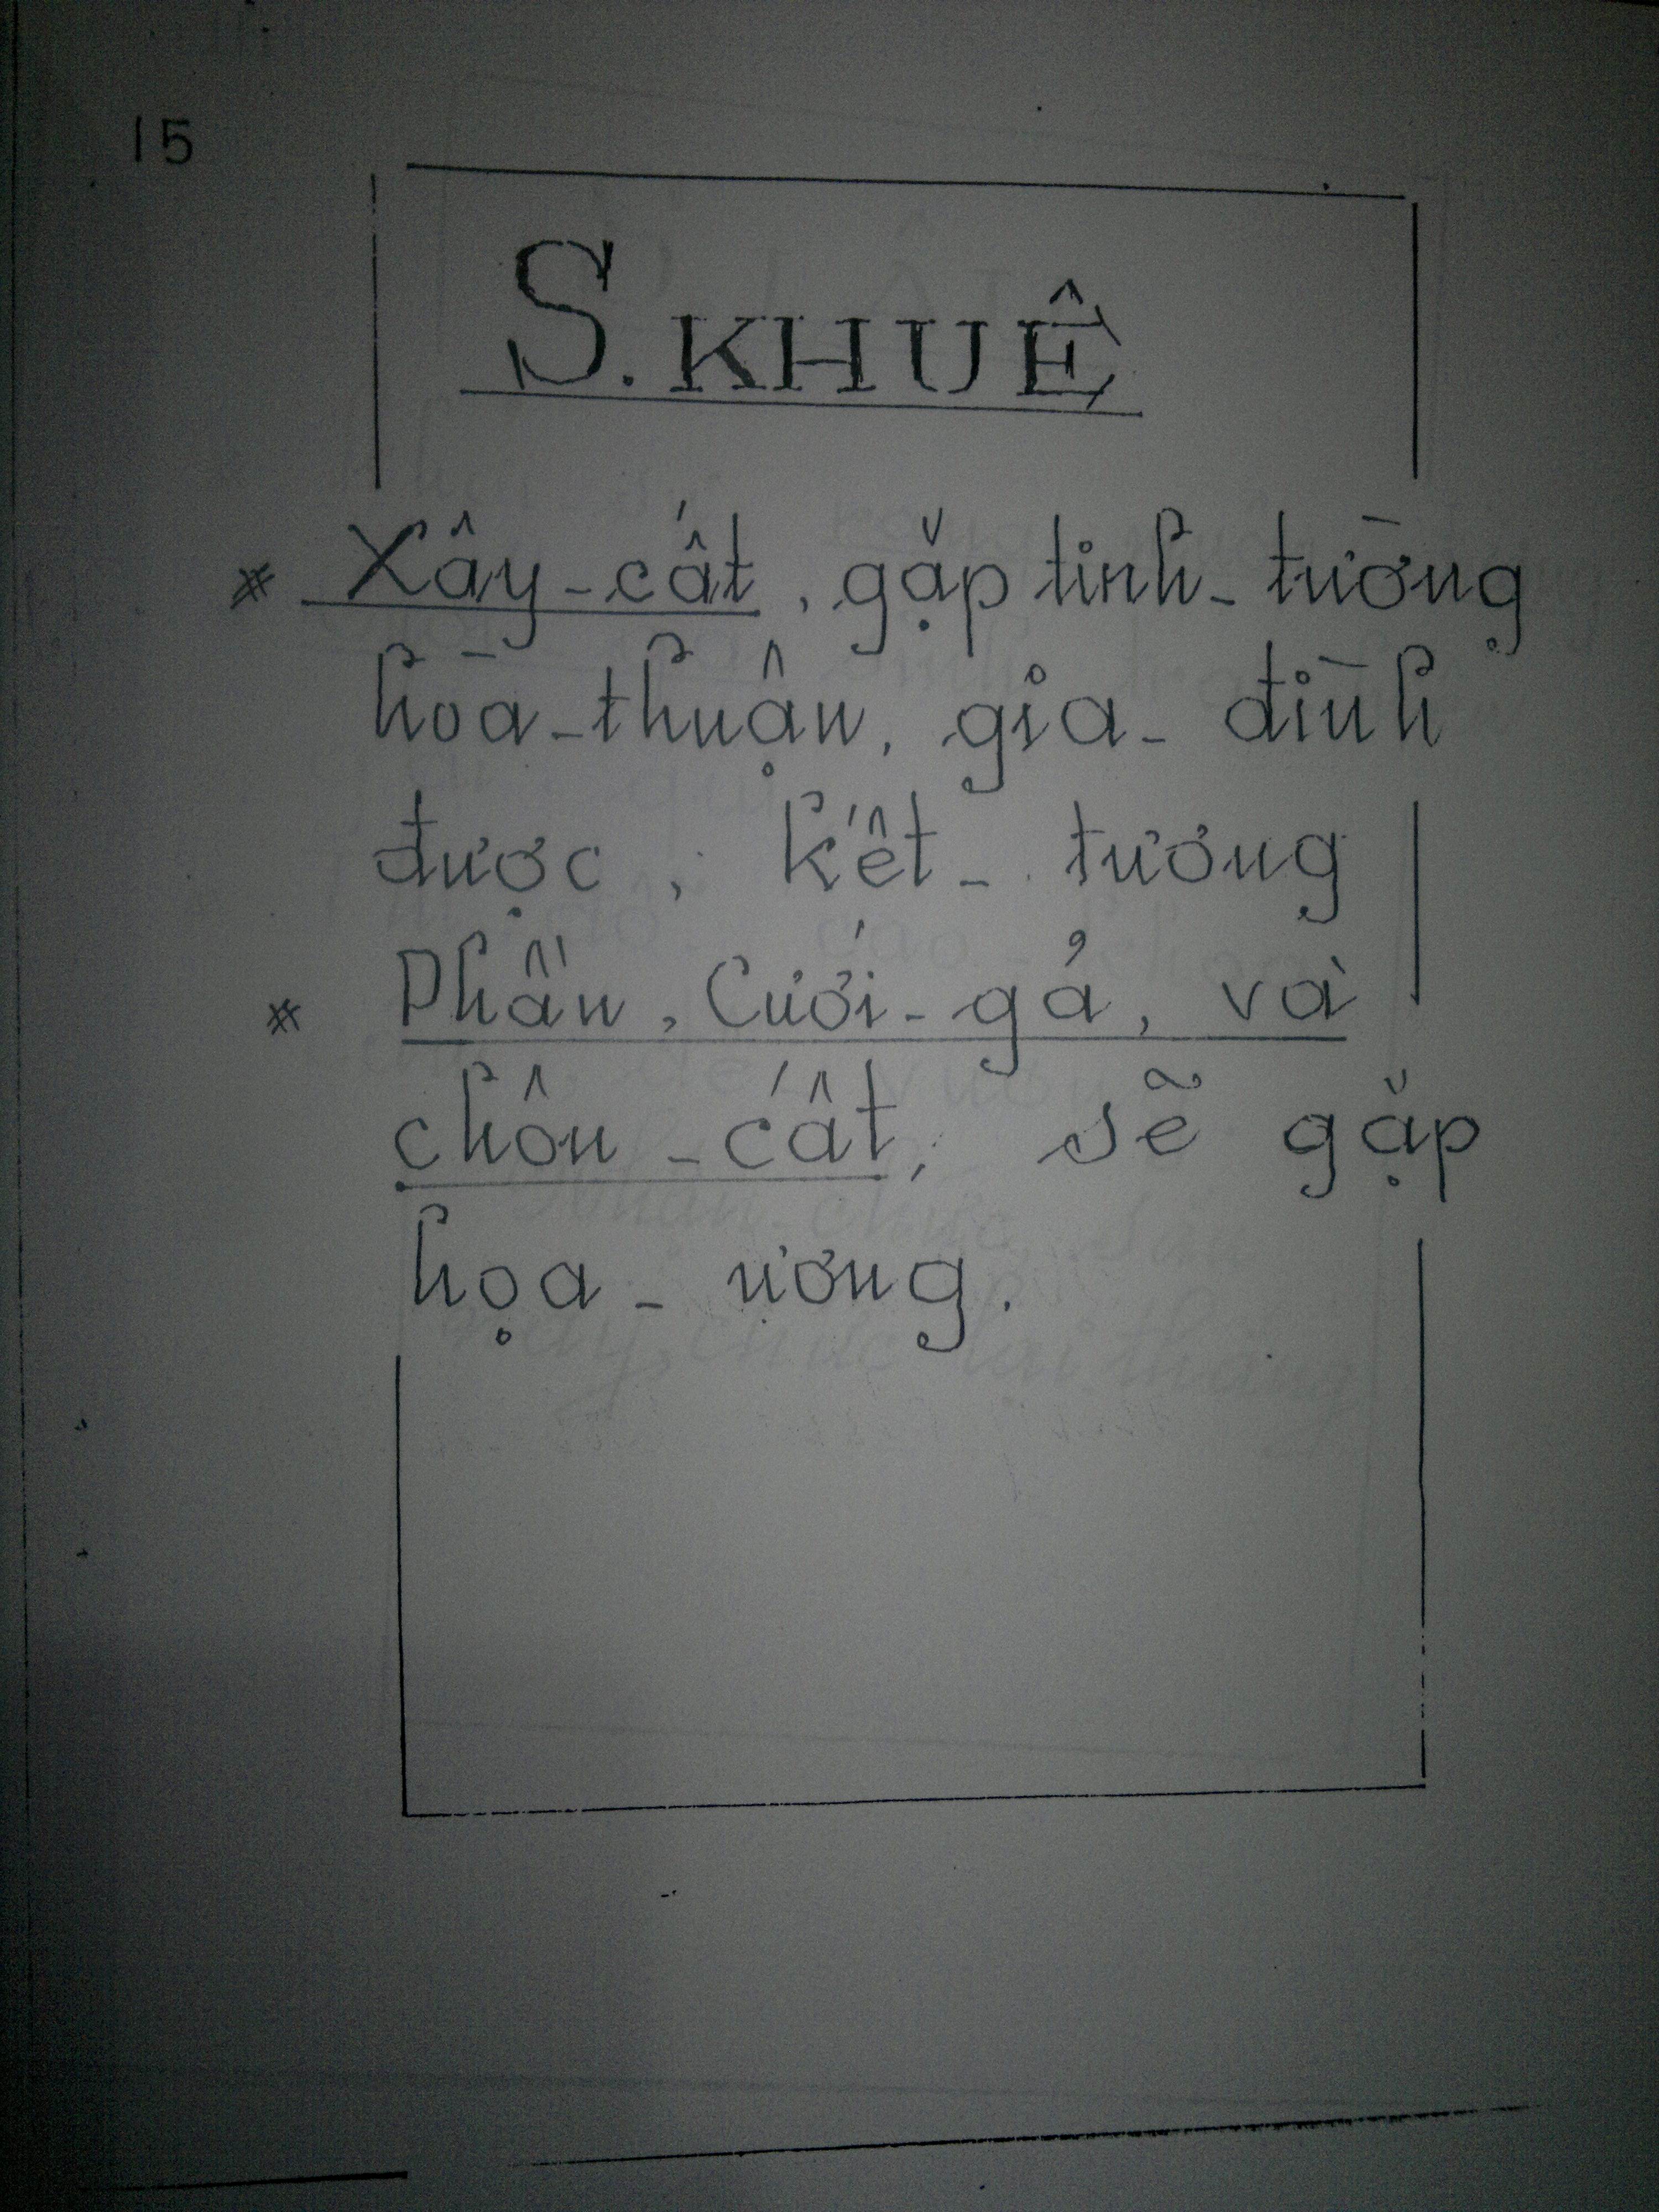 15
S. KHUÊ
* Xây-cất, gặp tinh-tường
hòa-thuận, gia-đình
được, Kết-tương
* Phần, Cưới-gả, và
chôn-cất, sẽ gặp
họa-ương.